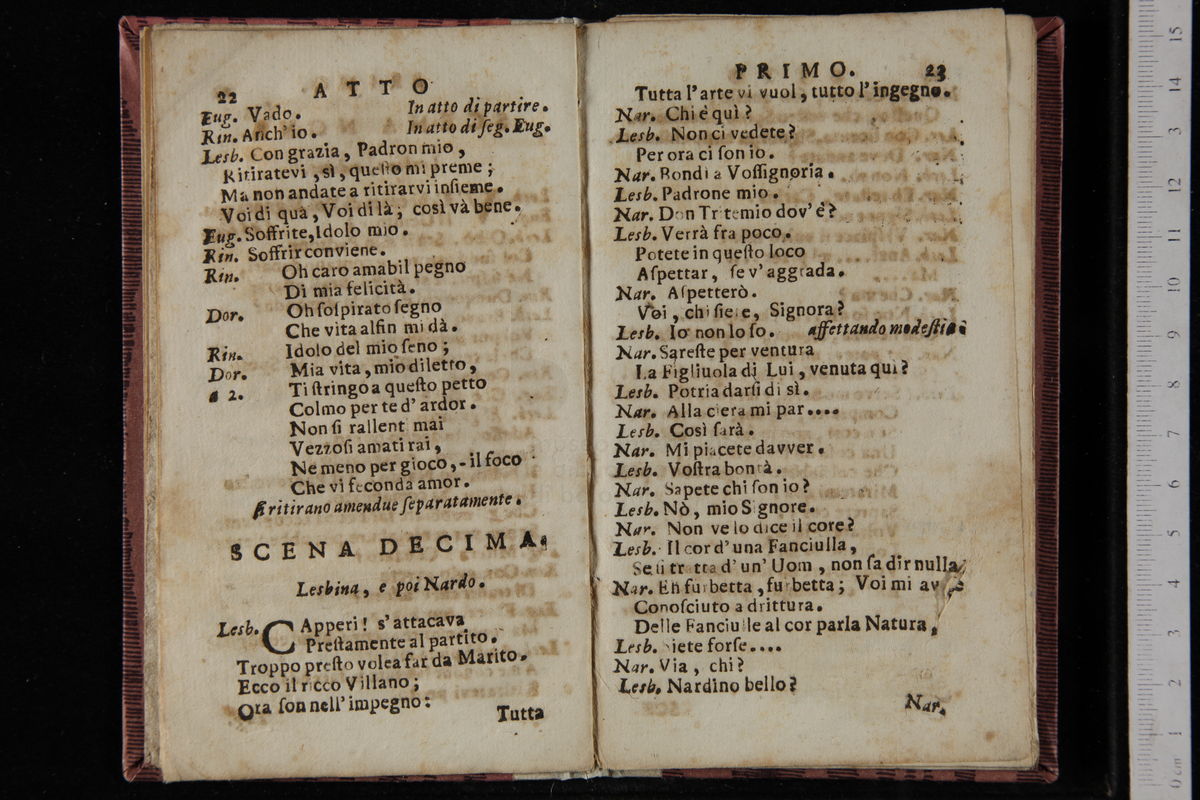 22 ATTO
Eug. Vado. In atto di partire.
Rin. Anch' io. In atto di ſeg. Eug.
Lesb. Con grazia, Padron mio,
Ritiratevi, sì, queſto mi preme;
Ma non andate a ritirarvi inſieme.
Voi di quà, Voi di là; così và bene.
Eug. Soffrite, Idolo mio.
Rin. Soffrir conviene.
Rin. Oh caro amabil pegno
Di mia felicità.
Dor. Oh ſoſpirato ſegno
Che vita alfin mi dà.
Rin. Idolo del mio ſeno;
Dor. Mia vita, mio diletto,
a 2. Ti ſtringo a queſto petto
Colmo per te d' ardor.
Non ſi rallent mai
Vezzoſi amati rai,
Ne meno per gioco, - il foco
Che vi feconda amor.
ſi ritirano amendue ſeparatamente.
SCENA DECIMA.
Lesbina, e poi Nardo.
Lesb. CApperi! s' attacava
Preſtamente al partito.
Troppo preſto volea far da Marito.
Ecco il ricco Villano;
Ora ſon nell' impegno:
Tutta
PRIMO. 23
Tutta l' arte vi vuol, tutto l' ingegno.
Nar. Chi è quì?
Lesb. Non ci vedete?
Per ora ci ſon io.
Nar. Bondì a Voſſignoria.
Lesb. Padrone mio.
Nar. Don Tritemio dov' è?
Lesb. Verrà fra poco.
Potete in queſto loco
Aſpettar, ſe v' aggrada.
Nar. Aſpetterò.
Voi, chi ſiete, Signora?
Lesb. Io non lo ſo. affettando modeſtia
Nar. Sareſte per ventura
La Figliuola di Lui, venuta quì?
Lesb. Potria darſi di sì.
Nar. Alla ciera mi par....
Lesb. Così ſarà.
Nar. Mi piacete davver.
Lesb. Voſtra bontà.
Nar. Sapete chi ſon io?
Lesb. Nò, mio Signore.
Nar. Non ve lo dice il core?
Lesb. Il cor d' una Fanciulla,
Se ſi tratta d' un' Uom, non ſa dir nulla
Nar. Eh furbetta, furbetta; Voi mi
Conoſciuto a drittura.
Delle Fanciulle al cor parla Natura,
Lesb. Siete forſe....
Nar. Via, chi?
Lesb. Nardino bello?
Nar.
15
14
13
12
11
10
9
8
7
6
5
4
3
2
1
0 cm